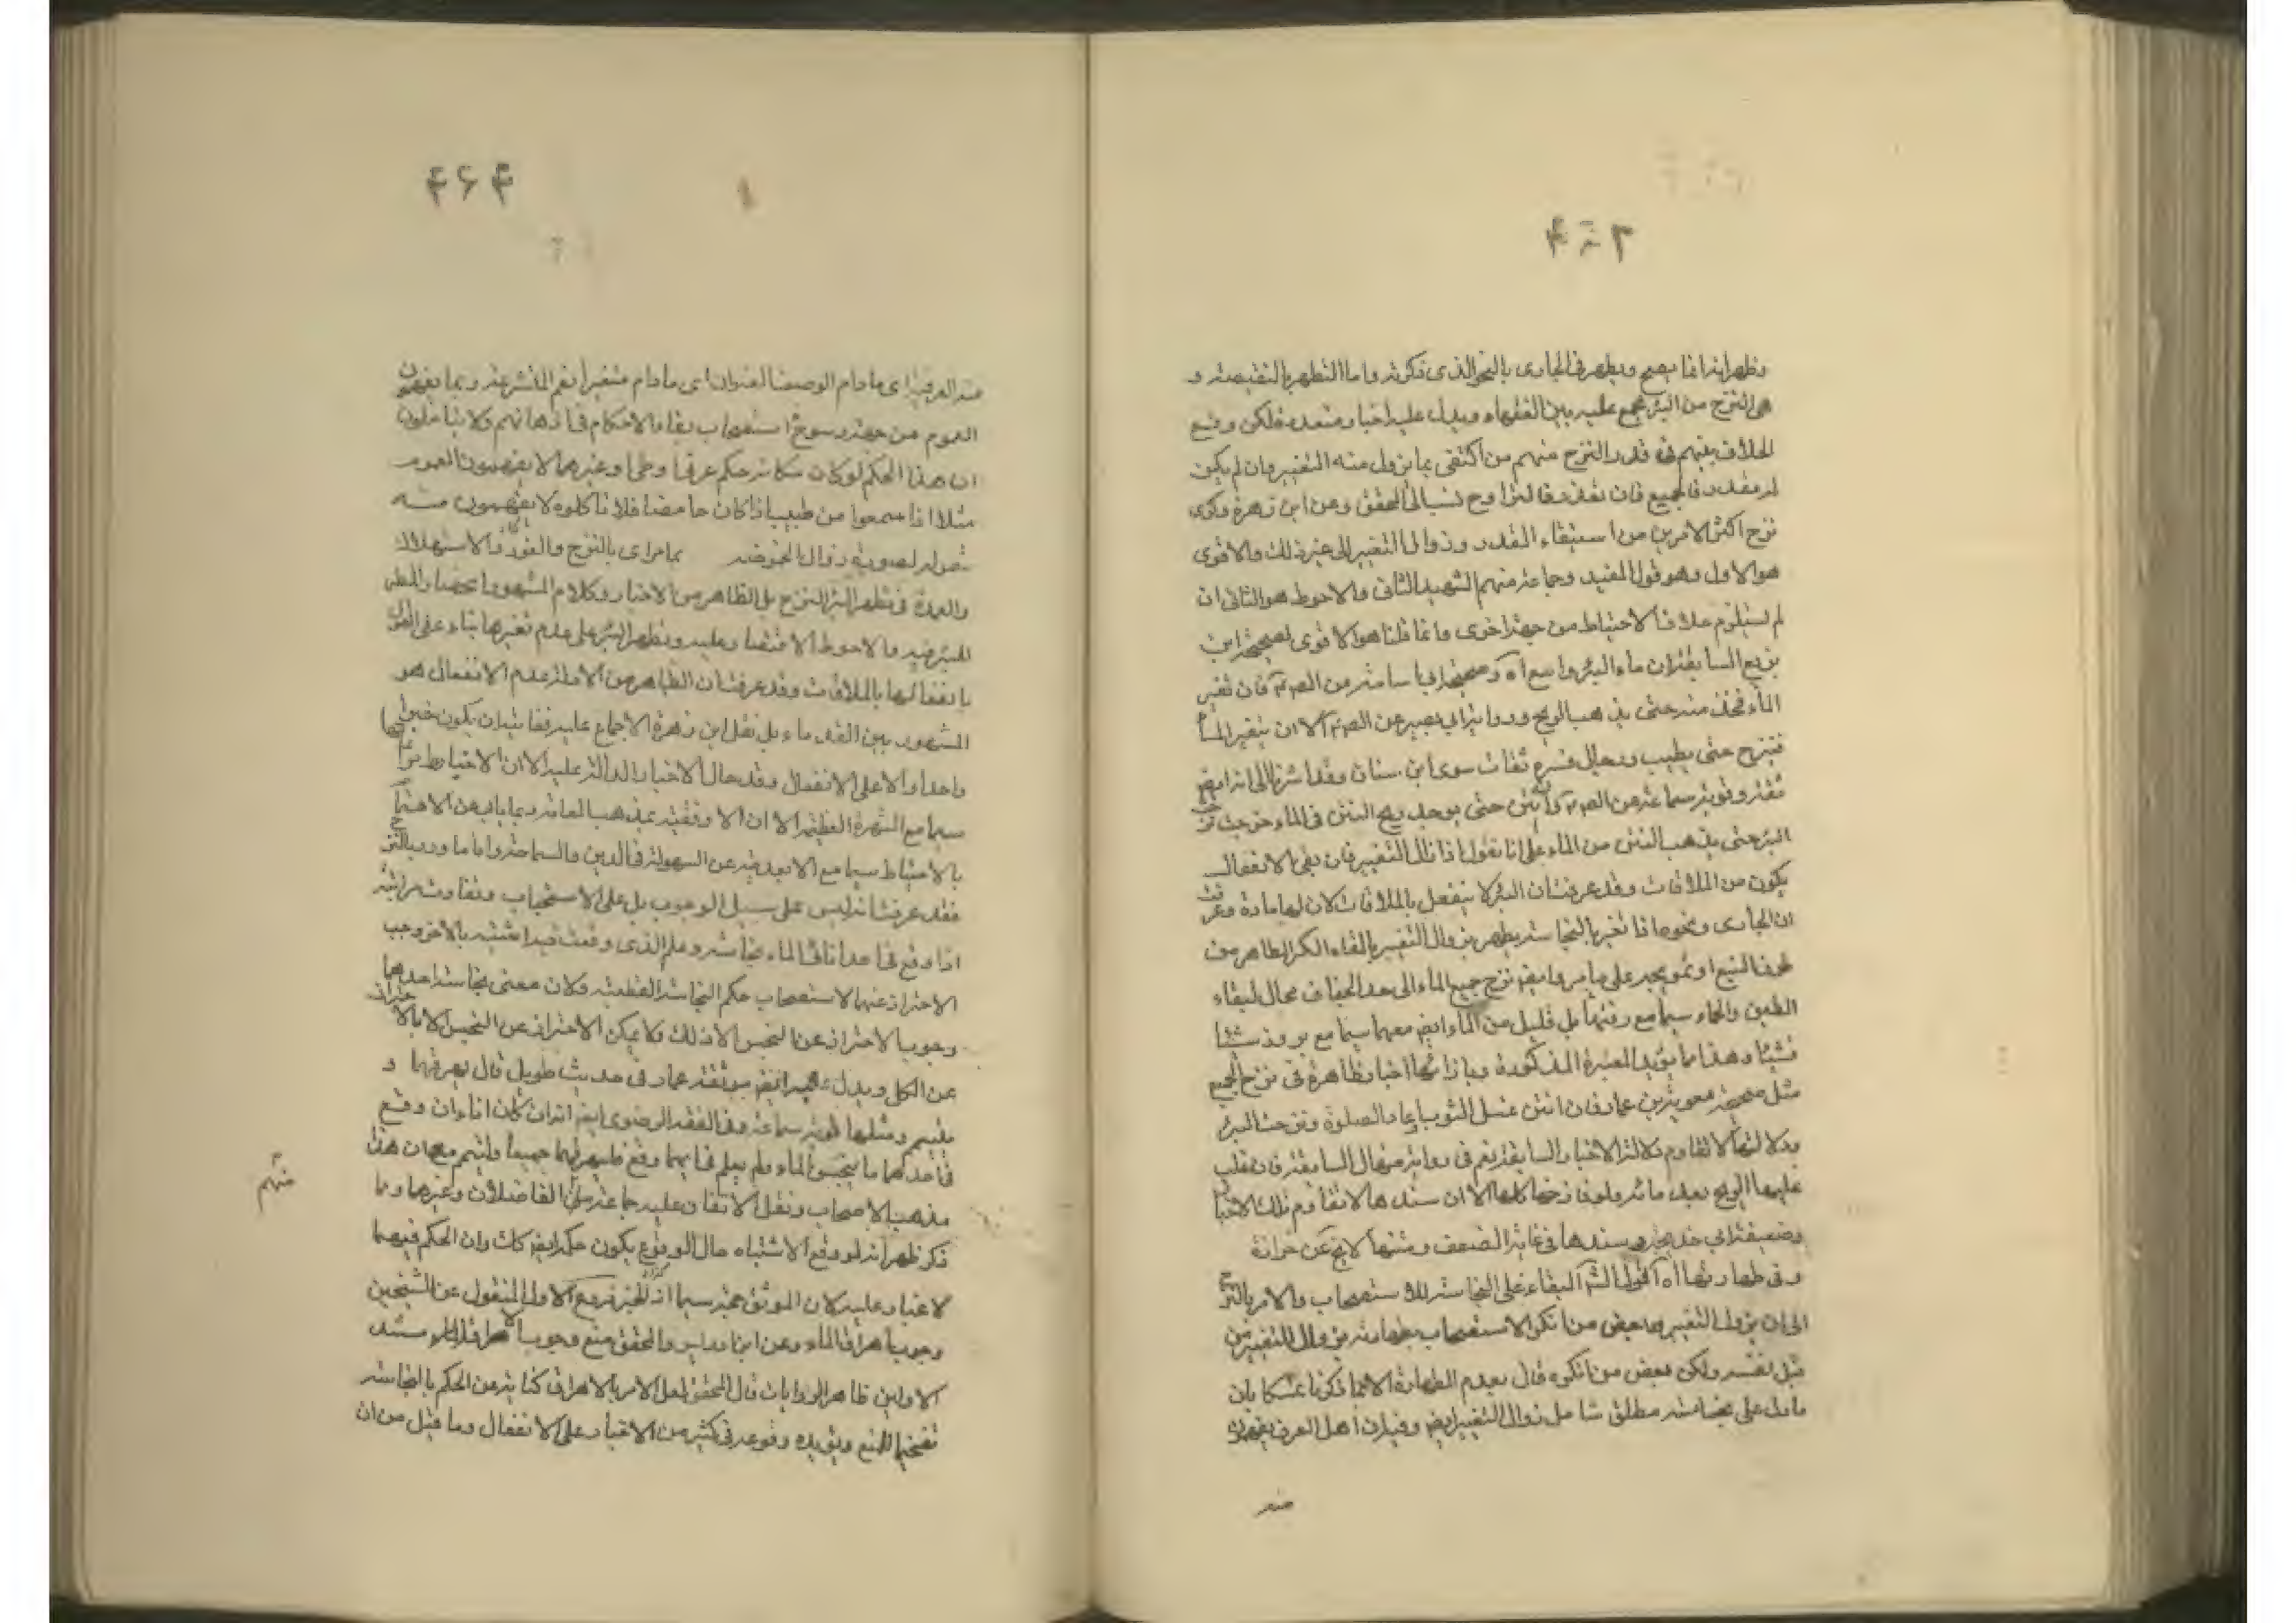 وظهر انه انما يصح ويطهر في الجارى بالنحو الذى ذكرته واما التطهر بالنقيصة و
هى النزح من البئر مجمع عليه بين الفقهاء ويدل عليه اخبار متعددة لكن وقع
الخلاف بينهم فى قدر النزح منهم من اكتفى بما يزول منه التغيير وان لم يكن
له مقدر فالجميع فان تعذر فالتراوح نسب الى المحقق وعن ابن زهرة وذكرى
نزح اكثر الامرين من استيفاء المقدر وزوال التغير الى غير ذلك والاقوى
هو الاول وهو قول المفيد وجماعة منهم الشهيد الثانى والاحوط هو الثانى ان
لم يستلزم خلاف الاحتياط من جهة اخرى وانما قلنا هو الاقوى لصحيحة ابن
بزيع السابقة ان ماء البئر واسع آه وصحيحة ابى اسامة من الص فان تغير
الماء فخذ منه حتى يذهب الريح ورواية ابى بصير عن الص الا ان يتغير الماء
فينزح حتى يطيب ورجال ثقات سوى ابن سنان وقد اشرنا الى انه ايض
ثقة وموثقة سماعة عن الص وان انتن حتى يوجد ريح النتن فى الماء نزحت
البئر حتى يذهب النتن من الماء على انا نقول اذا زال التغيير فان بقى الانفعال
يكون من الملاقات وقد عرفت ان البئر لا ينفعل بالملاقات لان لها مادة وعرفت
ان الجارى ونحوه اذا تغير بالنجاسة يطهر بزوال التغيير بالقاء الكر الطاهر من
طرف النبع او تمويجه على ما مر وايض نزح جميع الماء الى حد الجفاف محال لبقاء
الطين والحماء سيما مع رقتها بل قليل من الماء ايض معهما سيما مع بروز شيئا
فشيئا وهذا مما يؤيد المعتبرة المذكورة وبازائها اخبار ظاهرة فى نزح الجميع
مثل صحيحة معوية بن عمار فان انتن غسل الثوب واعاد الصلوة ونزحت البئر
ودلالتها لا تقاوم دلالة الاخبار السابقة نعم فى رواية منهال السابقة فان غلب
عليها الريح بعد مائة دلو فانزحها كلها الا ان سندها لا تقاوم تلك الاخبار
وضعيفة ابى خديجة وسندها فى غاية الضعف ومتنها لا يخ عن حزازة
وفى طهارتها آه اقول البقاء على النجاسة للاستصحاب والامر بالنزح
الى ان يزول التغيير وبعض من انكر الاستصحاب بطهارته بزوال التغيير من
قبل نفسه ولكن بعض من انكره قال بعدم الطهارة لا لما ذكرنا متمسكا بان
ما دل على نجاسته مطلق شامل زوال التغيير ايض وفيه ان اهل العرف يفهمون
منه
منه العرفية اى ما دام الوصف العنوان اى ما دام متغيرا نعم المتشرعة ربما يفهمون
العموم من جهة رسوخ استصحاب بقاء الاحكام فى اذهانهم ولا يتاملون
ان هذا الحكم لو كان مكانه حكم عرفى او طبى او غيرهما لا يفهمون العموم
مثلا اذا سمعوا من طبيب اذا كان حامضا فلا تاكلوه لا يفهمون منه
شموله لصورة زوال الحموضة بما مر اى بالنزح والغور والاستهلاك
والعمدة فى تطهر البئر النزح بل الظاهر من الاخبار وكلام المشهور انحصار المطهر
الشرعى والاحوط الاقتصار عليه وتطهر البئر على عدم تغيرها بناء على القول
بانفعالها بالملاقات وقد عرفت ان الظاهر من الادلة عدم الانفعال هو
المشهور بين القدماء بل نقل ابن زهرة الاجماع عليه فغايته ان يكون خبرا
واحدا والا على الانفعال وقد حال الاخبار الدالة عليه الا ان الاحتياط
سيما مع الشهرة العظيمة الا ان الاوفقية بمذهب العامة ربما ياب عن الاهتمام
بالاحتياط سيما مع الابعدية عن السهولة فى الدين والسماحة واما ما ورد بالنزح
فقد عرفت انه ليس على سبيل الوجوب بل على الاستحباب وتفاوت مراتبه
اذا وقع فى احد انائى الماء نجاسة وعلم الذى وقعت فيه اشتبه بالاخر وجب
الاحتراز عنهما لاستصحاب حكم النجاسة القطعية وكان معنى نجاسة احدهما
وجوب الاحتراز عن النجس الا ذلك ولا يمكن الاحتراز عن النجس الا بالاحتراز
عن الكل ويدل عليه ايض موثقة عمار فى حديث طويل قال يهريقهما و
يتيمم ومثلها موثقة سماعة وفى الفقه الرضوى ايض انه ان كان اناءان وقع
فى احدهما ما ينجس الماء ولم يعلم فى ايهما وقع فليهرقهما جميعا وليتيمم مع ان هذا
مذهب الاصحاب ونقل الاتفاق عليه جماعة الفاضلان وغيرهما وبما
منهم
ذكر ظهر انه لو وقع الاشتباه حال الوقوع يكون حكمه ايض كك وان الحكم فيهما
لا غبار عليه لان الموثق حجة سيما اذا انجبر فروع الاول المنقول عن الشيخين
وجوب اهراق الماء وعن ابن ادريس والمحقق منع وجوب اهراق الماء مستند
الاولين ظاهر الروايات قال المحقق لعل الامر بالاهراق كناية عن الحكم بالنجاسة
تفخيما للمنع ويؤيده وقوعه فى كثير من الاخبار على الانفعال وما قيل من ان